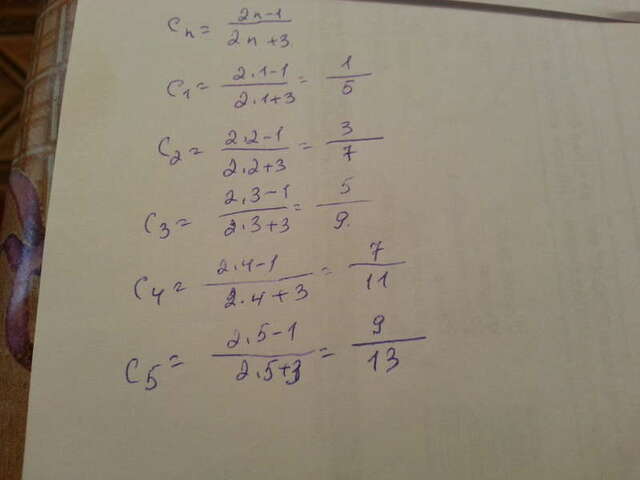 Cn = (2n-1)/(2n+3)
C1 = (2·1-1)/(2·1+3) = 1/5
C2 = (2·2-1)/(2·2+3) = 3/7
C3 = (2·3-1)/(2·3+3) = 5/9
C4 = (2·4-1)/(2·4+3) = 7/11
C5 = (2·5-1)/(2·5+3) = 9/13